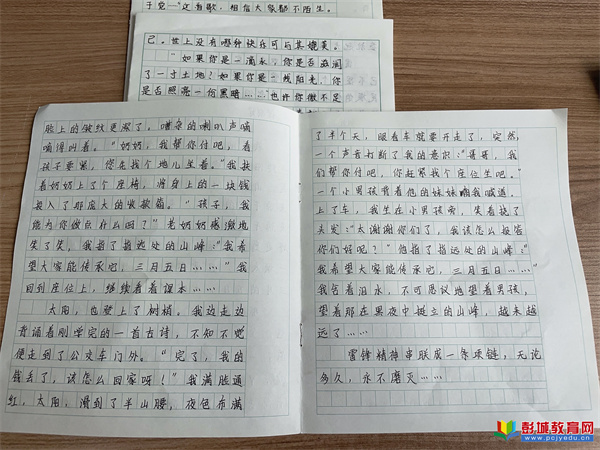 于党一"这首歌，相信大家都不陌生。
己。世上没有哪种快乐可与其媲美。
"如果你是一滴水，你是否滋润
了一寸土地？如果你是一线阳光，你
是否照亮一份黑暗……"也许你微不足
脸上的皱纹更深了。嘈杂的喇叭声嘀
嘀得叫着。"奶奶，我帮你付吧，看
孩子要累，您在找个地儿坐着。"我扶
着奶奶上了个座椅，将身上的一块钱
投入了那庞大的收款箱。"孩子，我
能为你做点什么回？"老奶奶感激地
笑了笑，我指了指远处的山峰："我希
望大家能传承它，三月五日……"我
回到座位上，继续看着课本……
太阳，也登上了树梢。我边走边
背诵着刚学完的一首古诗，不知不觉
便走到了公交车门外。"完了，我的
钱丢了，该怎么回家呀！"我满脸通
红。太阳，滑到了半山腰，夜色布满
了半个天，眼看车就要开走了，突然，
一个声音打断了我的意识："哥哥，我
们帮你付吧，你赶紧找个座位坐吧。"
一个小男孩背着他的妹妹喊道。
上了车，我坐在小男孩旁，笑着挠了
头发："太谢谢你们了，我该怎么报答
你们好呢？"他指了指远处的山峰："
我希望大家能传承它，三月五日……"
我含着泪水，不可思议地望着男孩，
望着那在黑夜中挺立的山峰，越来越
远了……
雷锋精神串联成一条项链，无论
多久，永不磨灭……
彭城教育网
www.pcjyedu.cn